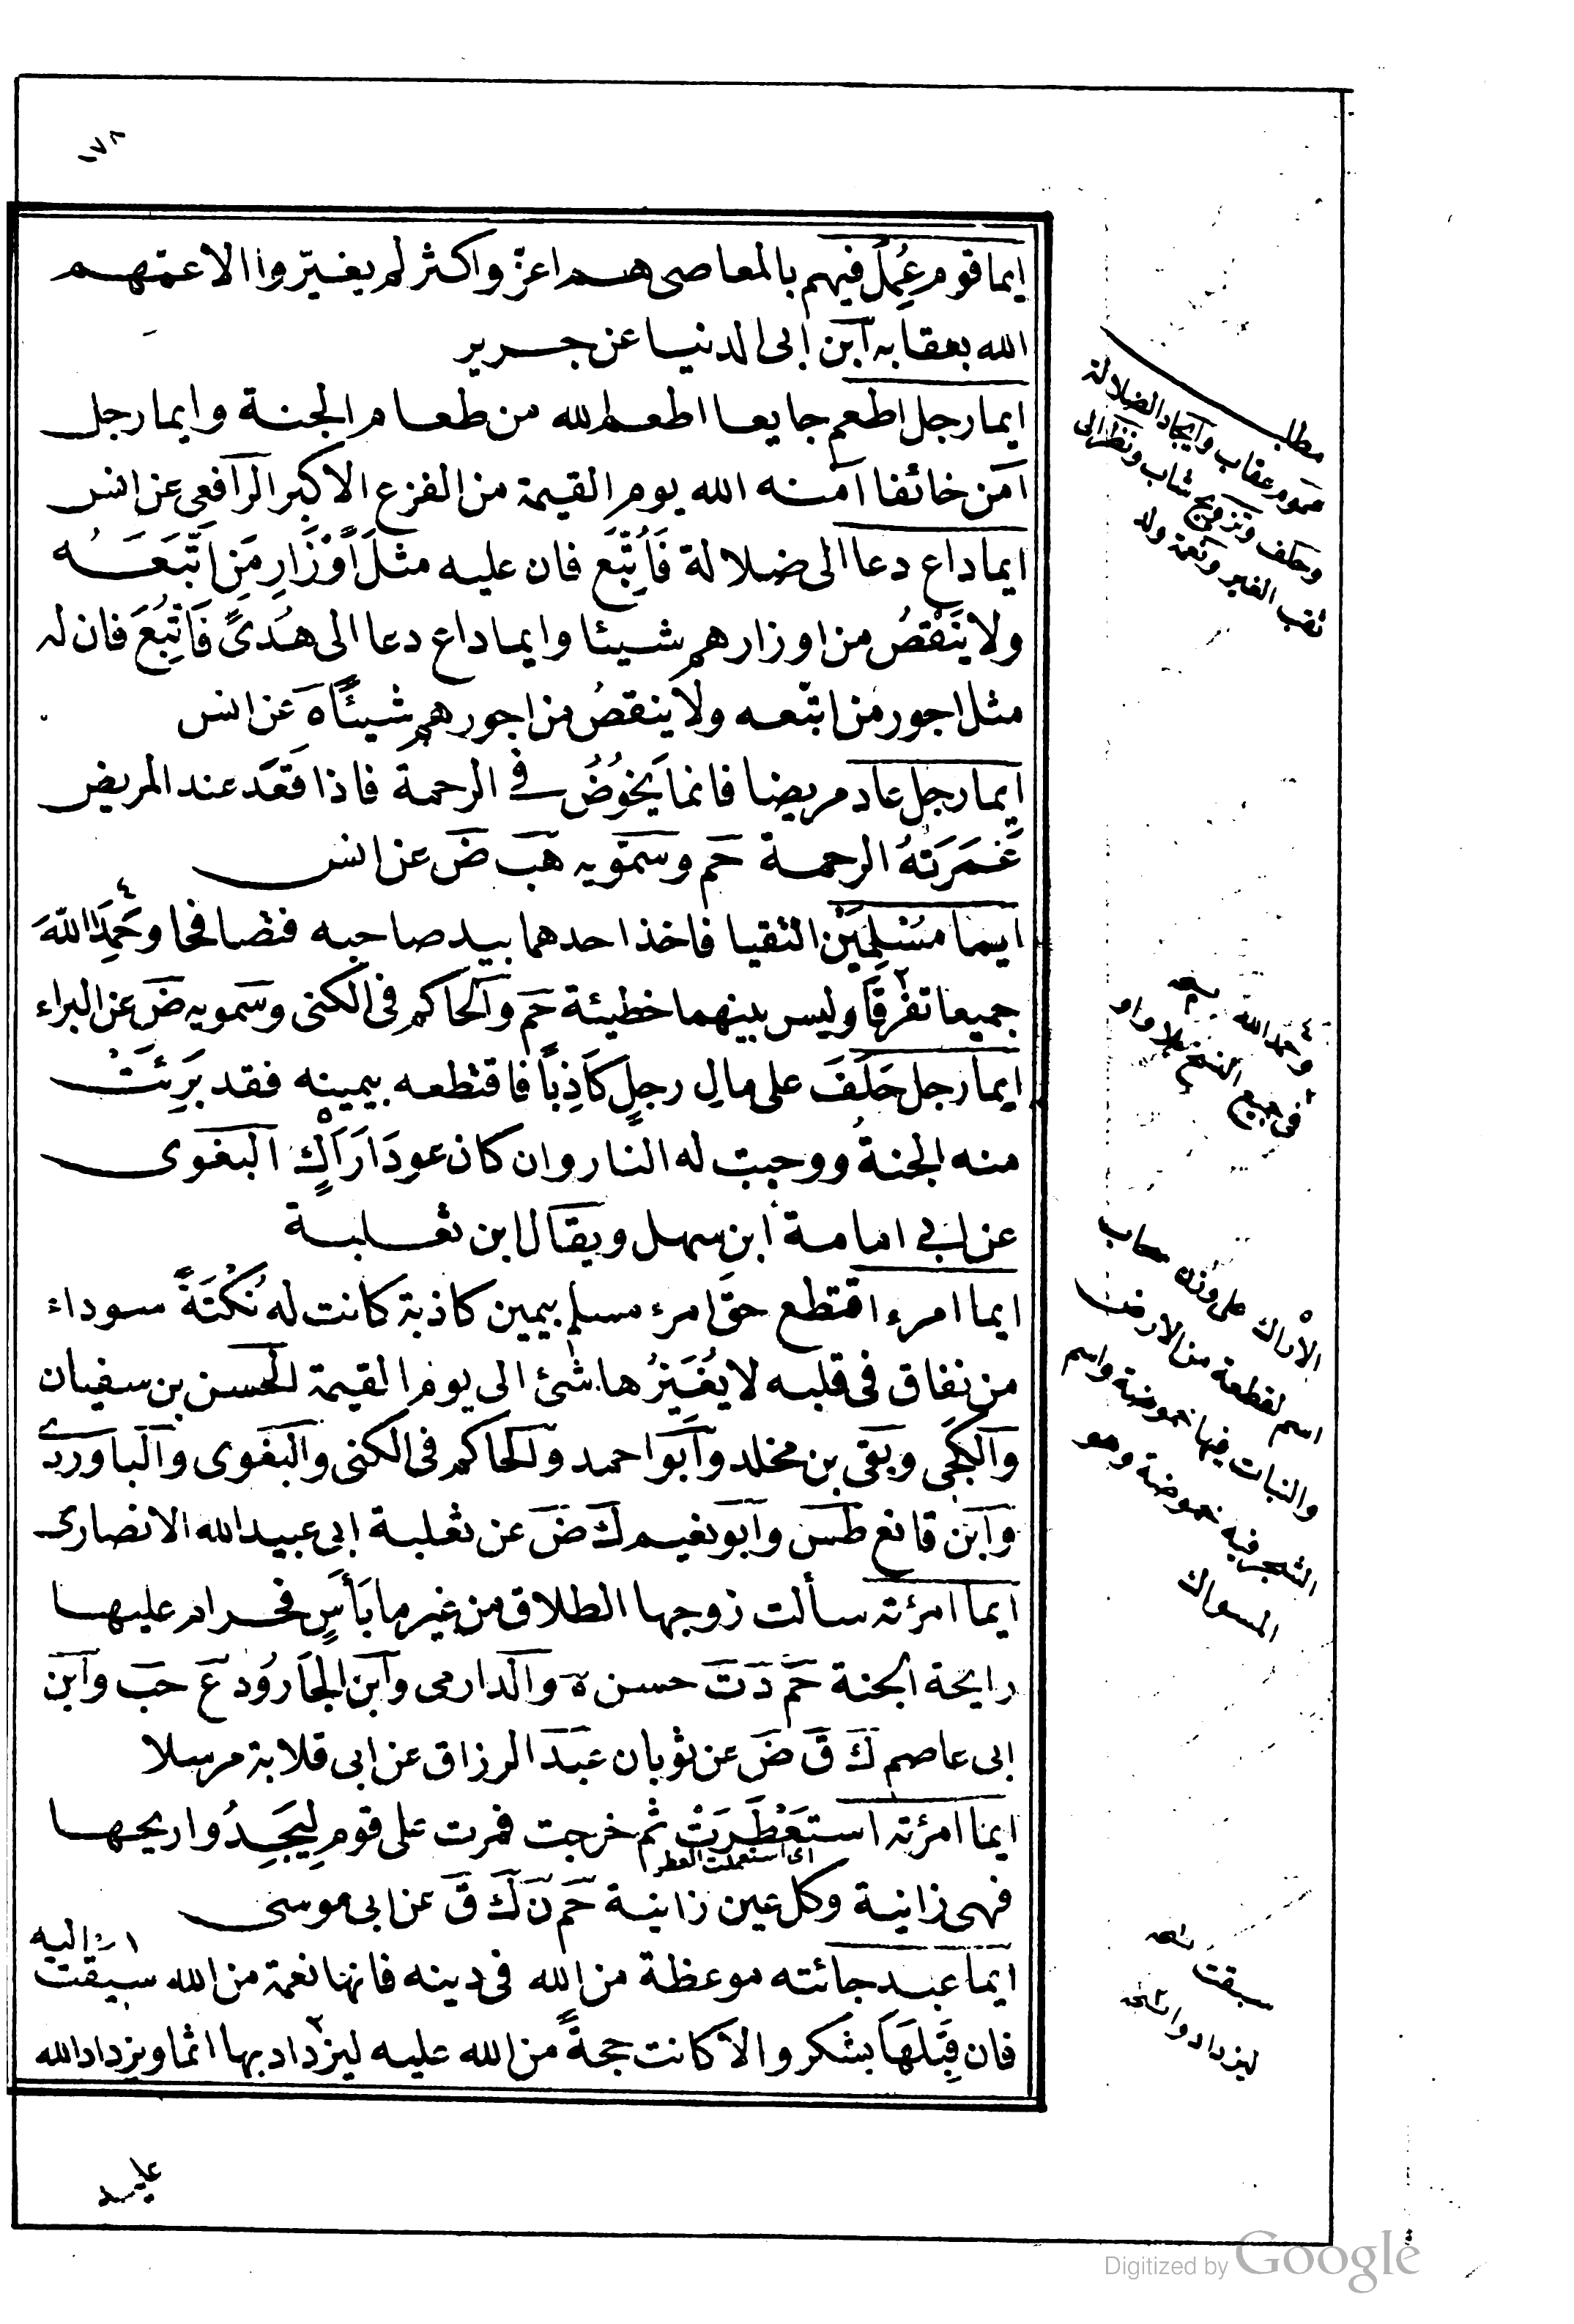 ١٧٨
ايما قوم عُمِلَ فيهم بالمعاصى هم اعزّ واكثر لم يغيّروا الا عمّهم
الله بعقابه ابن ابى الدنيا عن جرير
ايما رجل اطعم جايعا اطعمه الله من طعام الجنة وايما رجل
آمن خائفا آمنه الله يوم القيمة من الفزع الاكبر الرافعى عن انس
ايما داع دعا الى ضلالة فَاتُّبِعَ فان عليه مثلَ اَوْزَارِ مَنِ اتَّبَعَهُ
ولا يَنْقُصُ من اوزارهم شيئا وايما داع دعا الى هُدًى فَاتُّبِعَ فان له
مثل اجور من اتّبعه ولا ينقصُ من اجورهم شيئًا ه عن انس
ايما رجل عاد مريضا فانما يَخُوضُ فى الرحمة فاذا قَعَدَ عند المريض
غَمَرَتْهُ الرحمة حم وسمويه هب ض عن انس
ايما مُسْلِمَيْنِ التقيا فاخذ احدهما بيد صاحبه فتصافحا وحَمِدَا اللّٰهَ ٤
جميعا تفرقَا ٢ وليس بينهما خطيئة حم والحاكم فى الكنى وسمويه ض عن البراء
ايما رجل حَلَفَ على مالِ رجلٍ كَاذِبًا فاقتطعه بيمينه فقد بَرِئَتْ
منه الجنةُ ووجبت له النار وان كان عودَ اَرَاكٍ ٥ البغوى
عن ابى امامة ابن سهل ويقال ابن ثعلبة
ايما امرء اقتطع حقَّ امرء مسلم بيمين كاذبة كانت له نُكْتَةً سوداء
من نفاق فى قلبه لا يُغَيِّرُها شئ الى يوم القيمة الحسن بن سفيان
والكجى وبقى بن مخلد وابو احمد والحاكم فى الكنى والبغوى والباوردى
وابن قانع طس وابو نعيم ك ض عن ثعلبة ابى عبيد الله الانصارى
ايما امرئة سألت زوجها الطلاق من غير ما بَأْسٍ فحرام عليها
رايحة الجنة حم د ت حسن ه والدارمى وابن الجَارُود ع حب وابن
ابى عاصم ك ق ض عن ثوبان عبد الرزاق عن ابى قلابة مرسلا
ايما امرئة استَعْطَرَتْ ثم خرجت فمرت على قومِ لِيَجِدُوا ريحها
اى استعملت العطر
فهى زانية وكل عين زانية حم ن ك ق عن ابى موسى
ايما عبد جائته موعظة من الله فى دينه فانها نعمة من الله سيقت اليه
فان قَبِلَهَا بشكر والا كانت حجةً من الله عليه ليزداد ٢ بها اثما ويزداد الله
عليه
مطلب
عموم عقاب وايجاد الضلالة
وحلف وتزويج شاب ونظر الى
٤ وحمد الله نسخه
٢ فى جميع النسخ بلا واو
٥ الاراك على وزن سحاب
اسم لقطعة من الارض
والنبات فيها حموضة واسم
الشجر فيه حموضة وهو
المسواك
سبقت نسخه
ليزدادوا نسخه
Digitized by Google